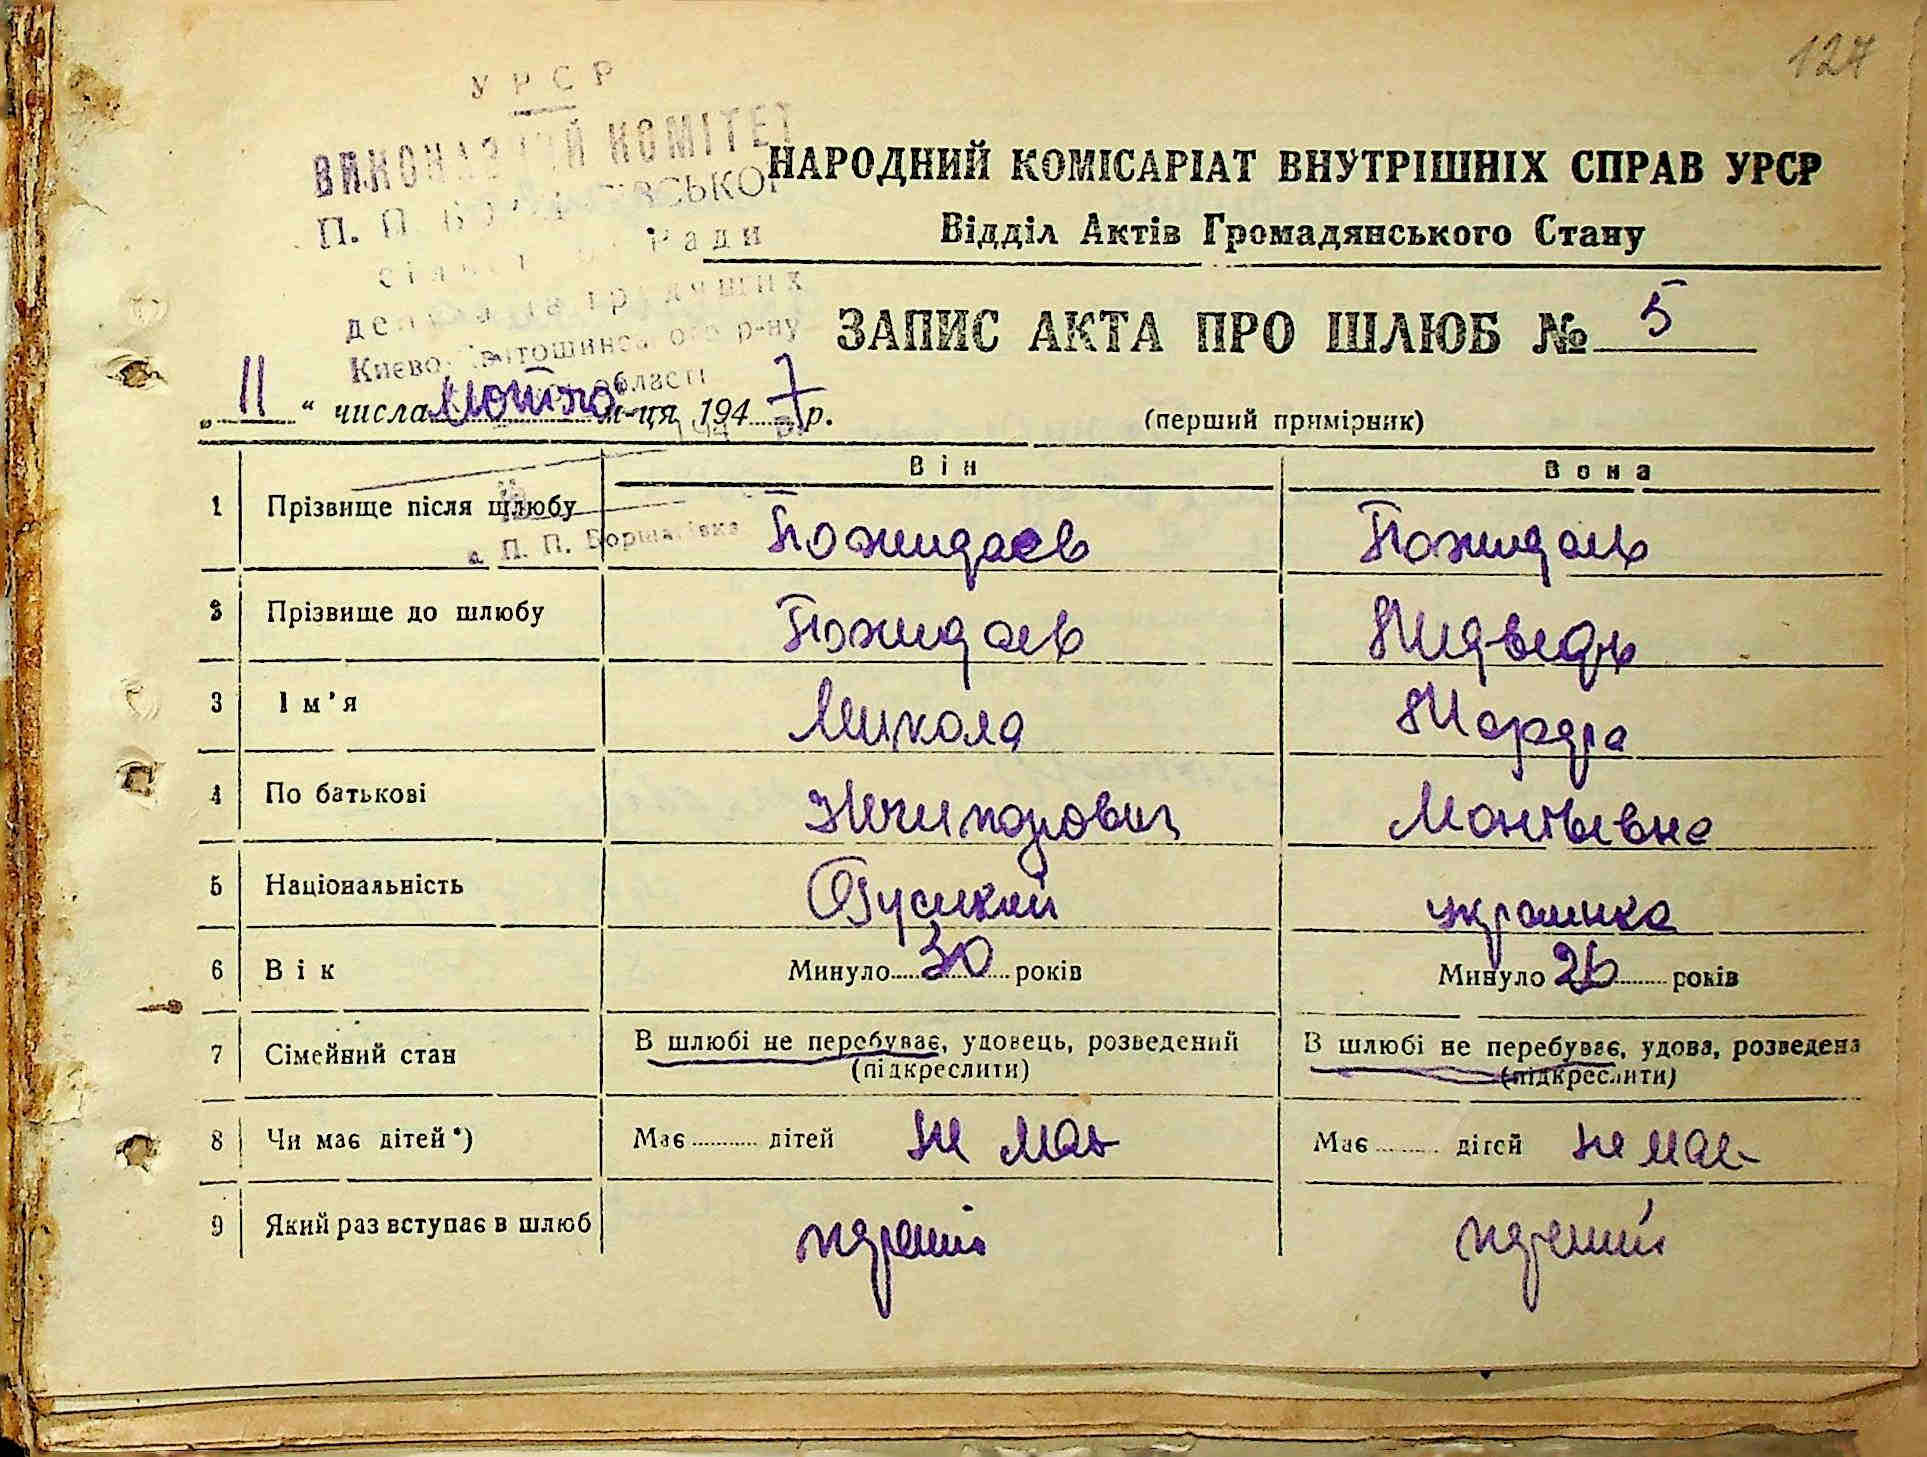 127
УРСР
ВИКОНАВЧИЙ КОМІТЕТ
НАРОДНИЙ КОМІСАРІАТ ВНУТРІШНІХ СПРАВ УРСР
Відділ Актів Громадянського Стану
ЗАПИС АКТА ПРО ШЛЮБ № 5
„ 11 “ числа м-ця 194 7 р.
(перший примірник)
Він Вона
1 Прізвище після шлюбу Пожидаєв Пожидаєв
а. П. П. Борщагівка
2 Прізвище до шлюбу Пожидаєв Медведь
3 Ім'я Микола
4 По батькові Ничипорович
5 Національність Руський українка
6 Вік Минуло 30 років Минуло 26 років
7 Сімейний стан В шлюбі не перебуває, удовець, розведений (підкреслити) В шлюбі не перебуває, удова, розведена (підкреслити)
8 Чи має дітей*) Має дітей не має Має дітей не має
9 Який раз вступає в шлюб перший перший